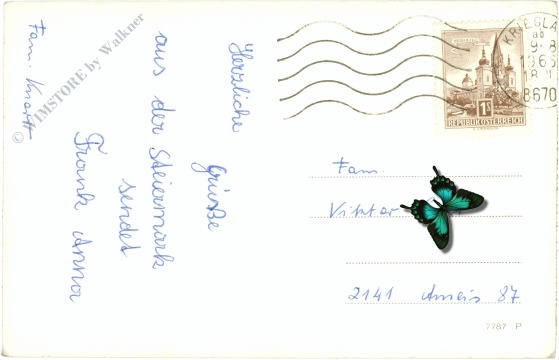 Herzliche Grüße
aus der Steiermark
sendet
Frank Anna
Fam. Knarr
© WIMSTORE by Walkner
KRIEGLA
ab
9-8
1965
18
8670
1S
REPUBLIK ÖSTERREICH
Fam.
Viktor
2141 Ameis 87
7787 P